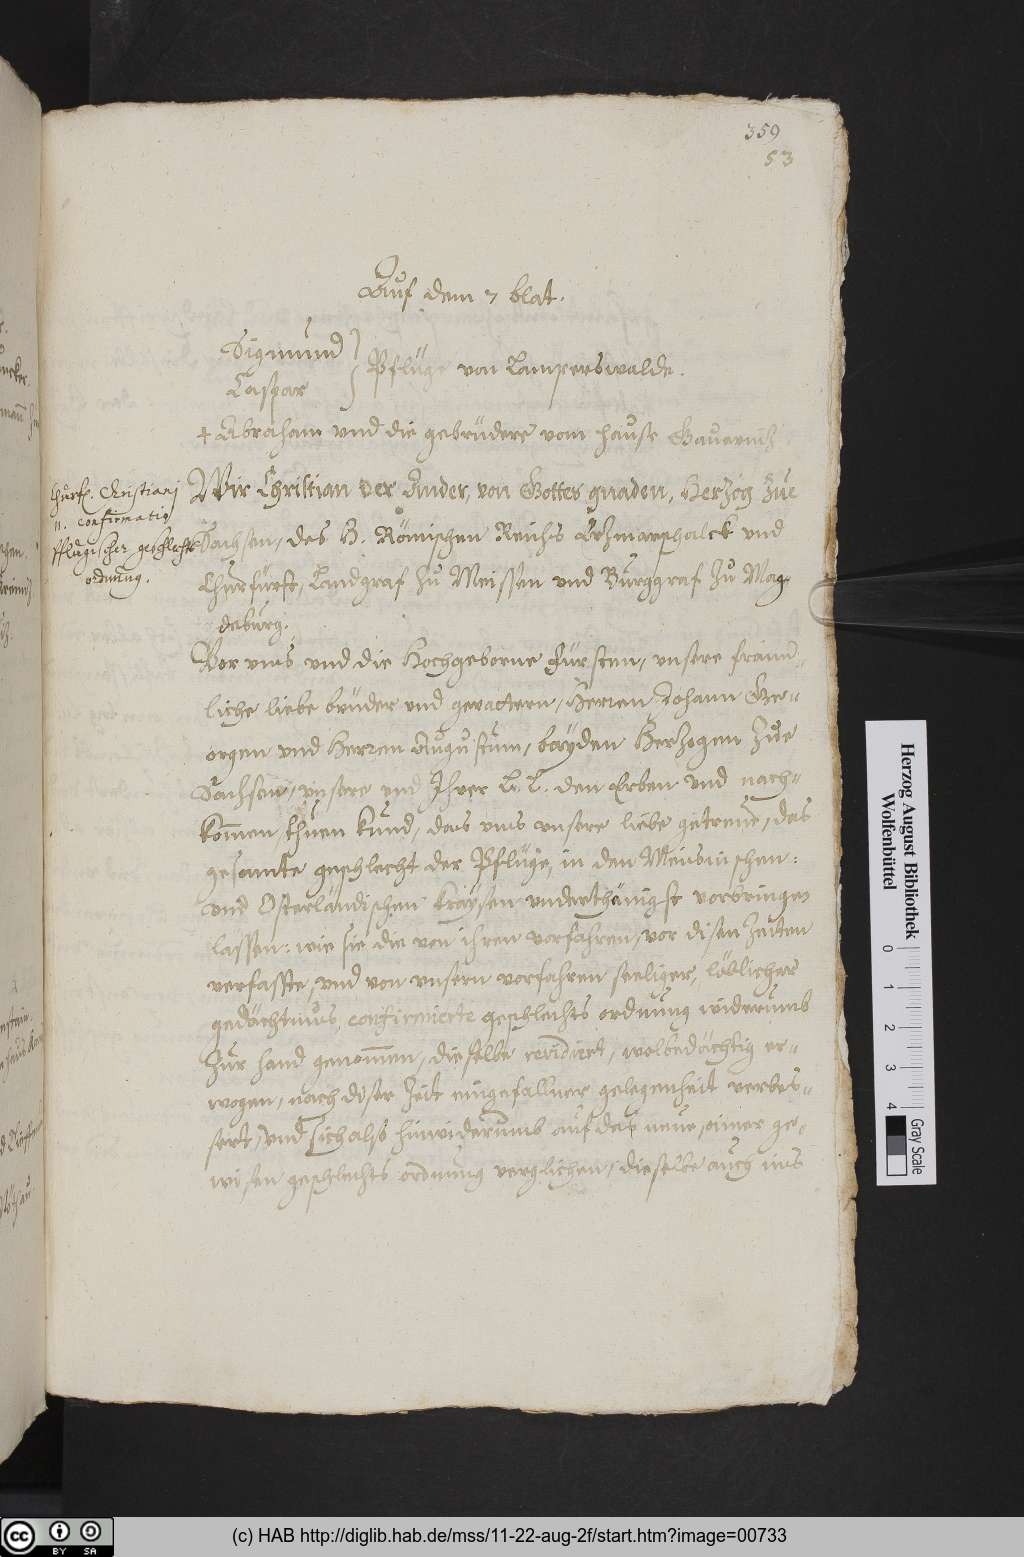 359
53
Auf dem 7 blat.
Sigmund
Caspar } Pflüge von Lamperswalde.
+ Abraham vnd die gebrüdere vom hause Gauernitz
Churf. Christiani
II. confirmatio
Pflugischer geschlechts
ordnung.
Wir Christian der Ander, von Gottes gnaden, Herzog Zue
Sachsen, des H. Römischen Reichs Erzmarschalck vnd
Churfürst, Landgraf Zu Meissen vnd Burggraf Zu Mag-
deburg.
Vor vns vnd die Hochgeborne Fürsten, vnsere freünd-
liche liebe brüder vnd gevattern, Herren Johann Ge-
orgen vnd Herren Augustum, bayden Herzogen Zue
Sachsen, vnsere vnd Ihrer L. L. den Erben vnd nach-
kommen, thuen kund, das vns vnsere liebe getreue, das
gesamte geschlecht der Pflüge, in den Meisnischen:
vnd Osterländischen Kraysen vnderthänigst vorbringen
lassen: wie sie die von ihren vorfahren, vor disen Zeiten
verfasste, vnd von vnsern vorfahren seeliger, löblicher
gedächtnus, confirmierte geschlechts ordnung widerumb
Zur hand genommen, dieselbe revidiert, wolbedächtig er-
wogen, nach diser Zeit eingefallner gelegenheit verbes-
sert, vnd sich also hinwiderumb auf das neue, einer ge-
wisen geschlechts ordnung verglichen, dieselbe auch vns
Herzog August Bibliothek
Wolfenbüttel
0 1 2 3 4
Gray Scale
cc BY SA
(c) HAB http://diglib.hab.de/mss/11-22-aug-2f/start.htm?image=00733